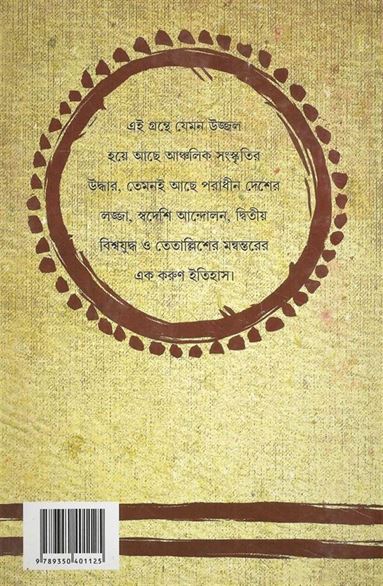 এই গ্রন্থে যেমন উজ্জ্বল
হয়ে আছে আঞ্চলিক সংস্কৃতির
উদ্ধার, তেমনই আছে পরাধীন দেশের
লজ্জা, স্বদেশি আন্দোলন, দ্বিতীয়
বিশ্বযুদ্ধ ও তেতাল্লিশের মন্বন্তরের
এক করুণ ইতিহাস।
9 789350 401125